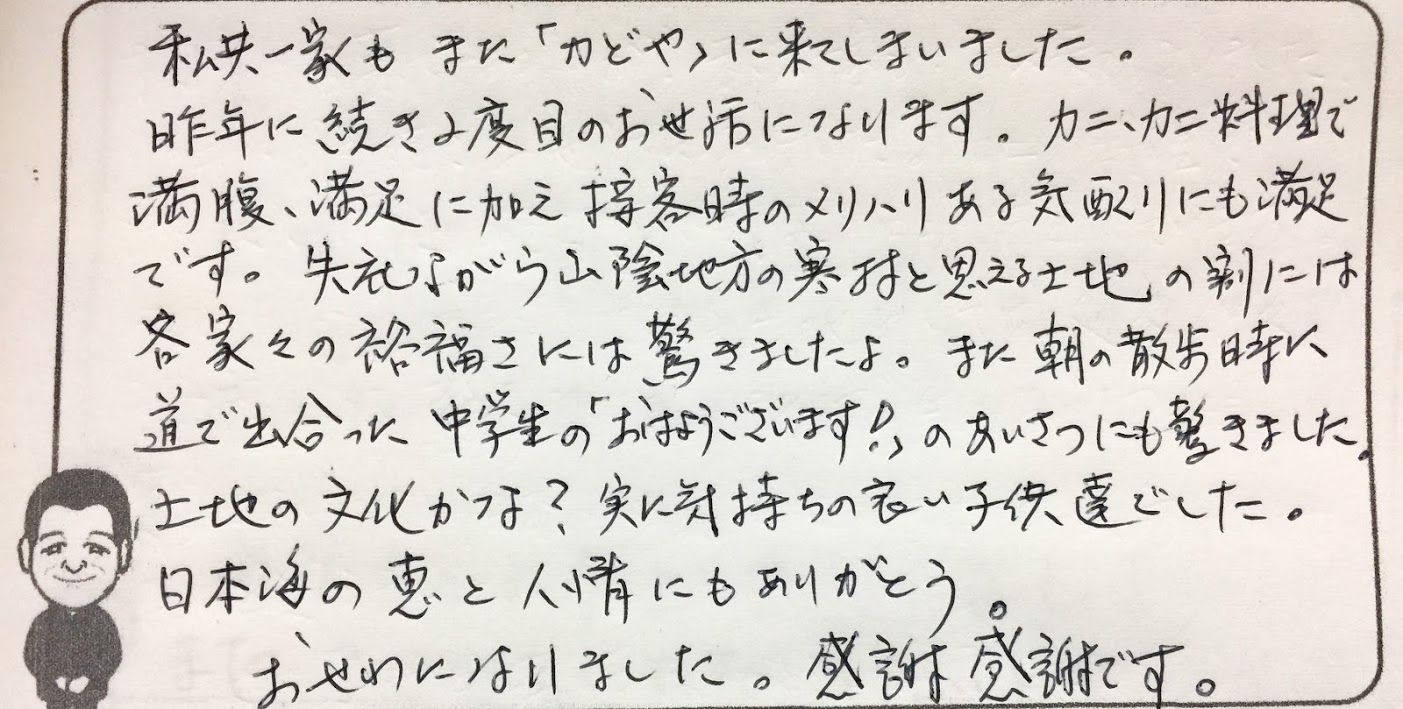 私共一家も また「かどや」に来てしまいました。
昨年に続き2度目のお世話になります。カニ、カニ料理で
満腹、満足に加え 接客時のメリハリある気配りにも満足
です。失礼ながら山陰地方の寒村と思える土地の割には
各家々の裕福さには驚きましたよ。また朝の散歩時に
道で出合った 中学生の「おはようございます!」のあいさつにも驚きました。
土地の文化かな?実に気持ちの良い子供達でした。
日本海の恵と人情にもありがとう。
おせわになりました。感謝感謝です。